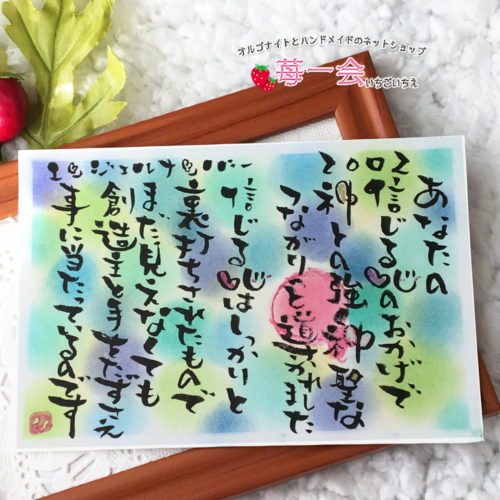 オルゴナイトとハンドメイドのネットショップ
苺一会 いちごいちえ
あなたの
信じる心のおかげで
神との強く神聖な
つながり されました
信じる心はしっかりと
裏打ちされたもので
まだ見えなくても
創造主と手をたずさえ
事に当たっているのです
エンジェルナンバー